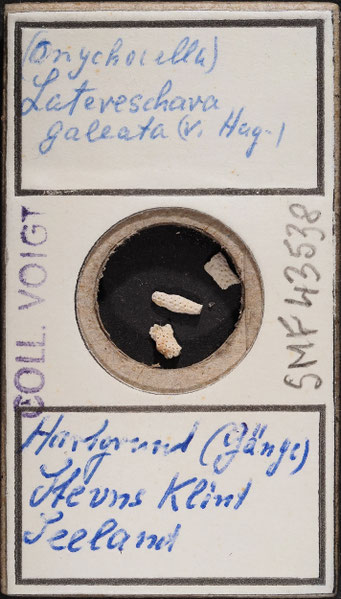 (Onychocella)
Latereschara
galeata (v. Hag.)
COLL. VOIGT
SMF 43538
Hartgrund (Gänge)
Stevns Klint
Seeland